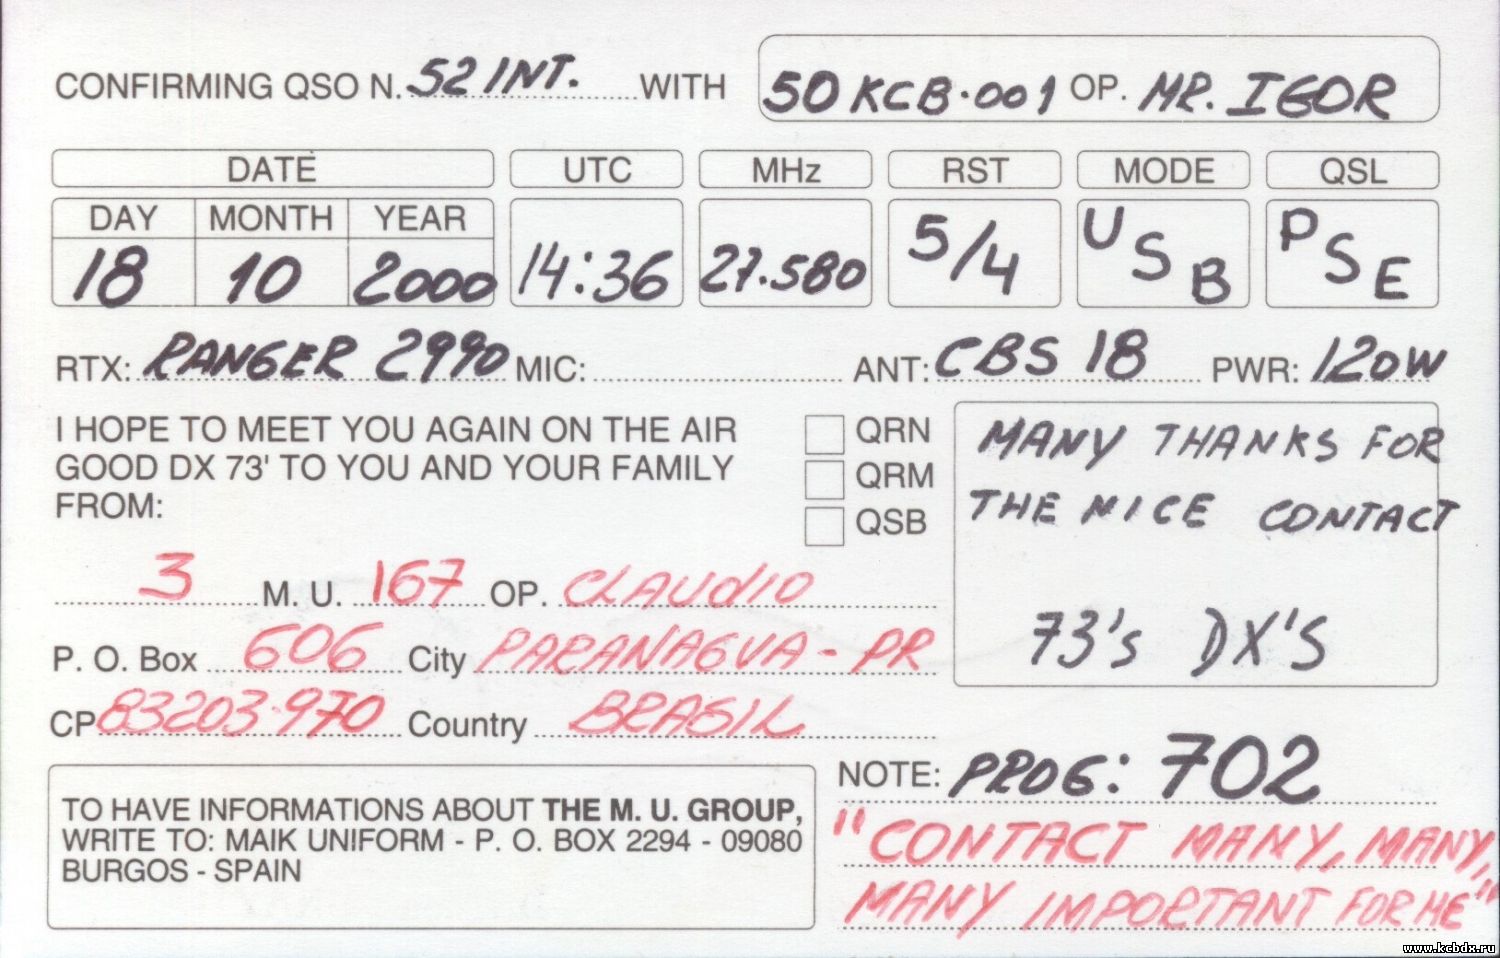 CONFIRMING QSO N. 52 INT. WITH 50 KCB·001 OP. MR. IGOR
DATE UTC MHz RST MODE QSL
DAY MONTH YEAR
18 10 2000 14:36 27.580 5/4 USB PSE
RTX: RANGER 2990 MIC: ANT: CBS 18 PWR: 120W
I HOPE TO MEET YOU AGAIN ON THE AIR
GOOD DX 73' TO YOU AND YOUR FAMILY
FROM:
QRN
QRM
QSB
MANY THANKS FOR
THE NICE CONTACT
73's DX'S
3 M. U. 167 OP. CLAUDIO
P. O. Box 606 City PARANAGUA - PR
CP 83203-970 Country BRASIL
TO HAVE INFORMATIONS ABOUT THE M. U. GROUP,
WRITE TO: MAIK UNIFORM - P. O. BOX 2294 - 09080
BURGOS - SPAIN
NOTE: PROG: 702
"CONTACT MANY, MANY,
MANY IMPORTANT FOR ME"
www.kcbdx.ru